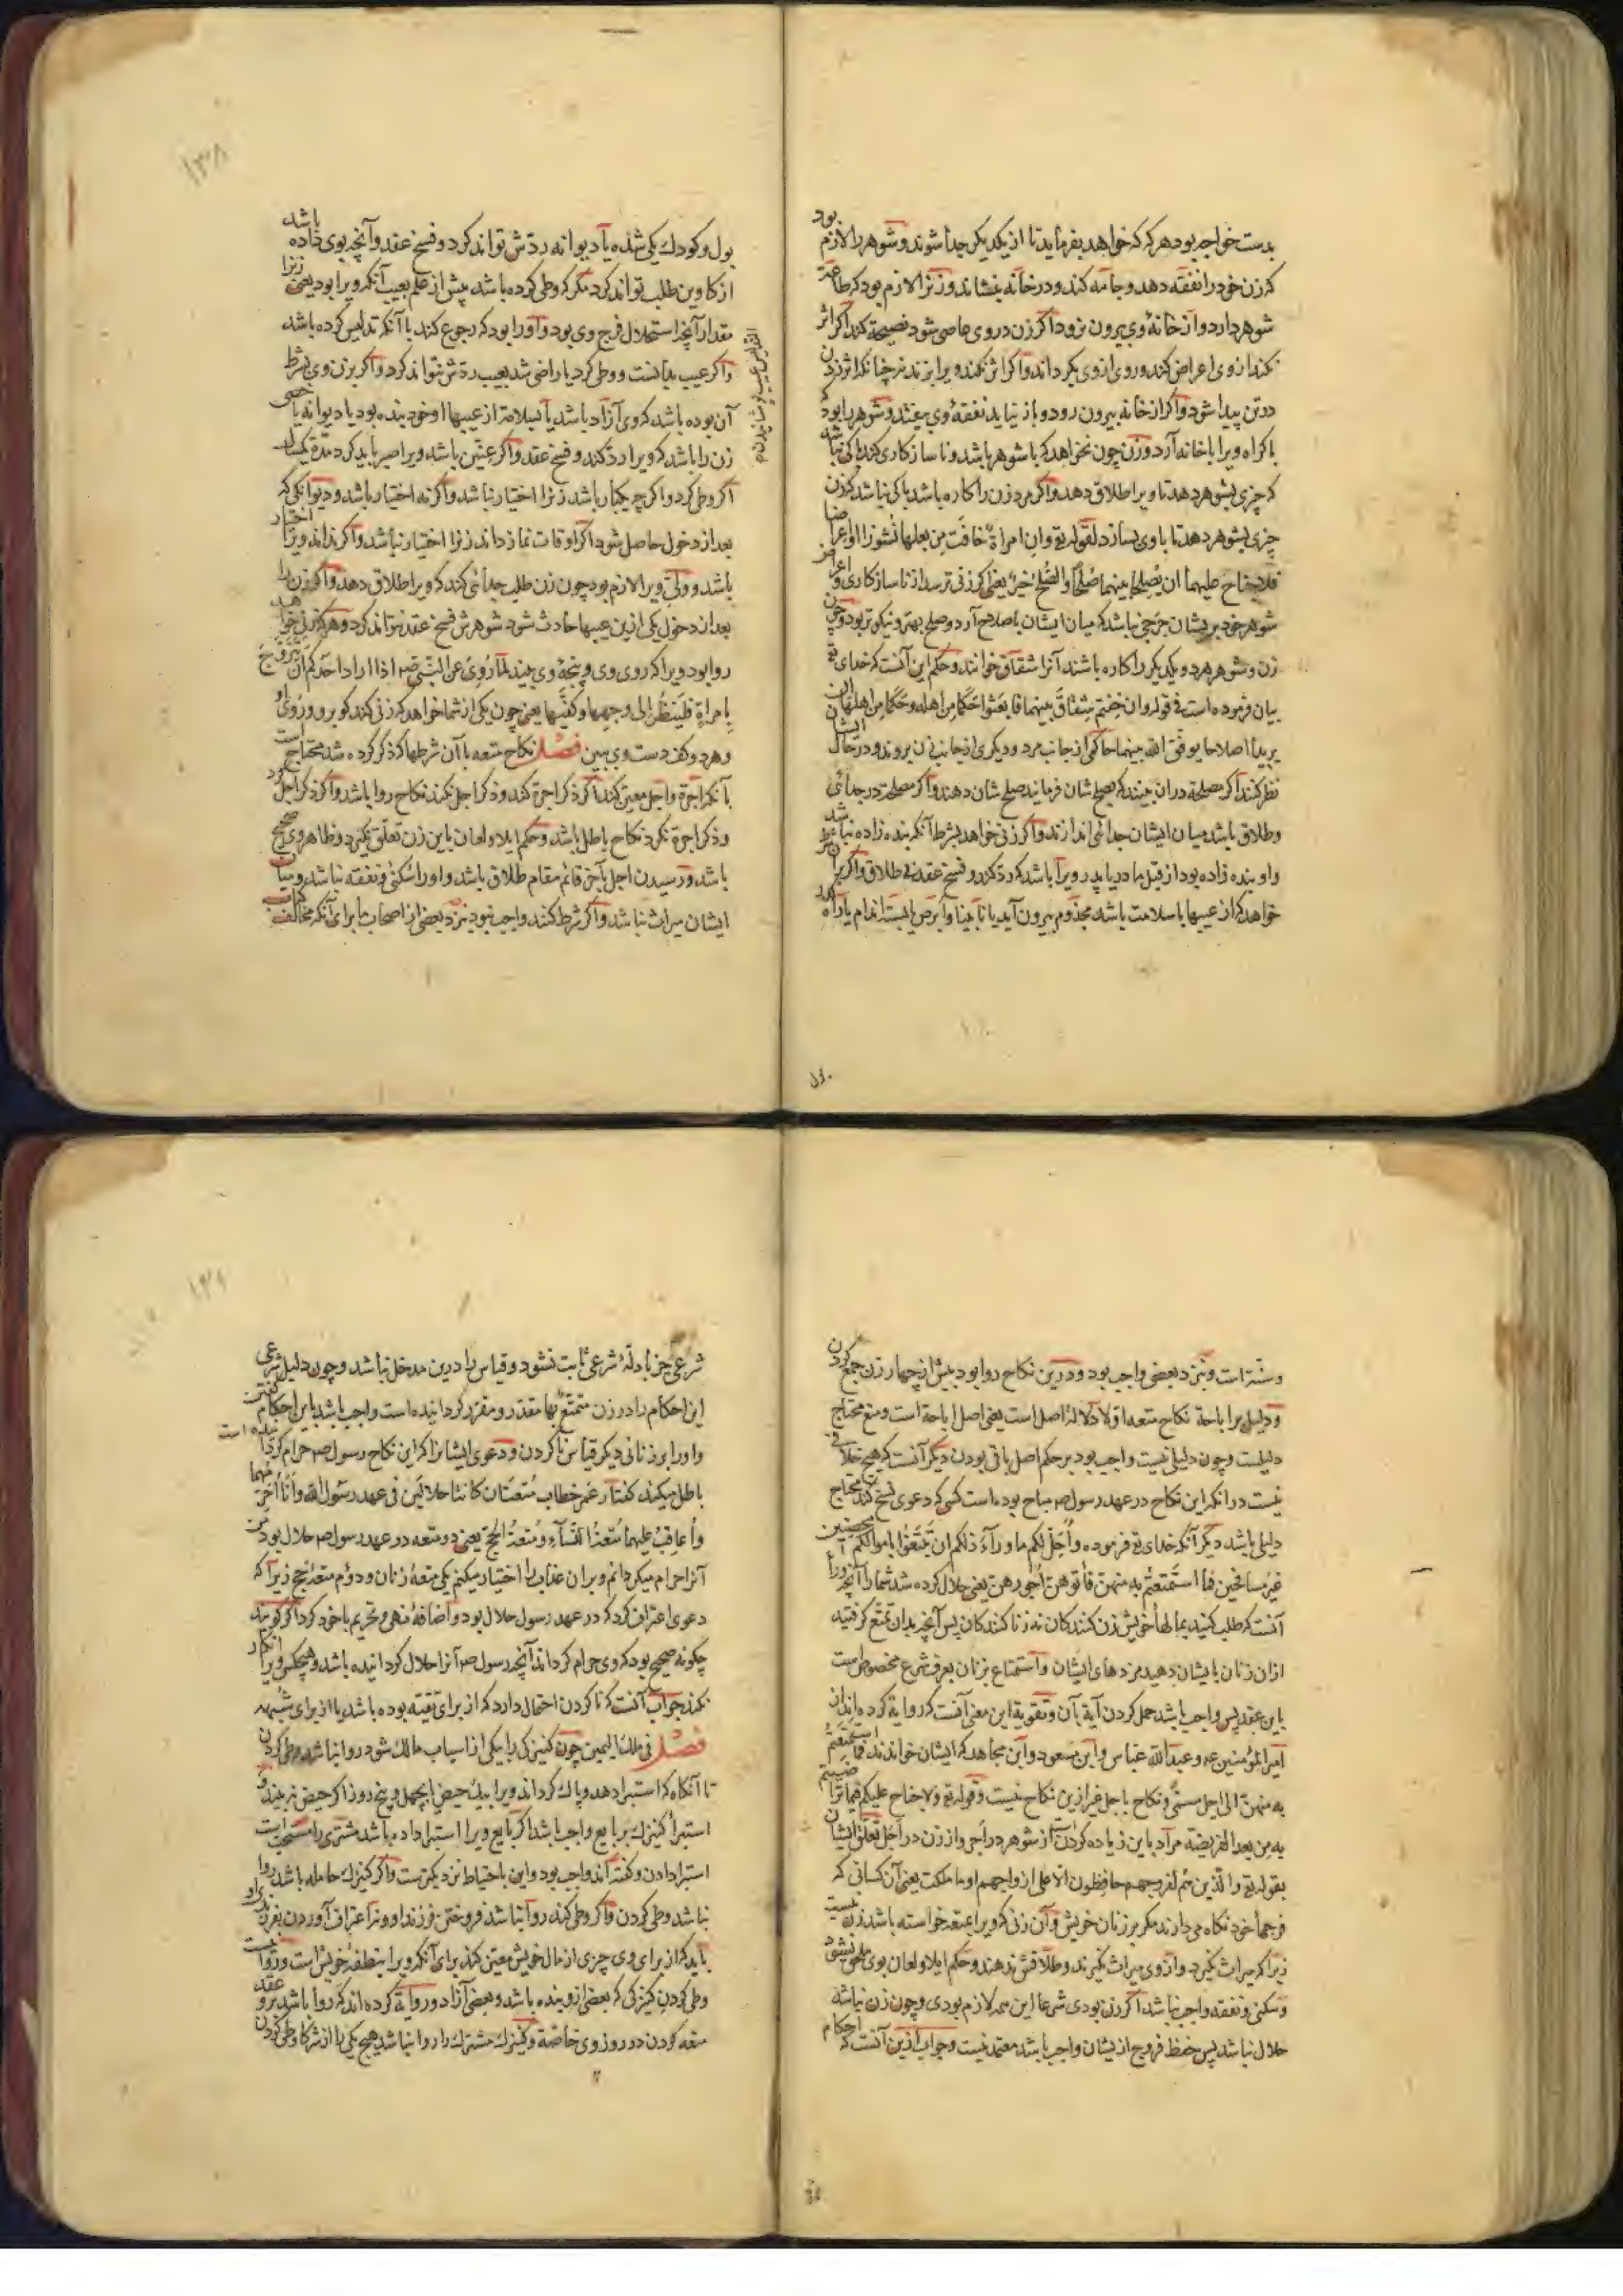 بدست خواجه بود هر که که خواهد بفرماید تا از یکدیگر جدا شوند و شوهر را لازم بود
که زن خود را نفقه دهد و جامه کند و در خانه بنشاند و زنرا لازم بود که طاعة
شوهر دارد و از خانهٔ وی بیرون نرود اگر زن در وی عاصی شود نصیحة کند اگر اثر
نکند از وی اعراض کند و روی از وی بگرداند و اگر اثر نکند ویرا بزند نه چنانکه اثر زدن
در تن پیدا شود و اگر از خانه بیرون رود و باز نیاید نفقهٔ وی بیفتد و شوهر را بود
باکراه ویرا با خانه آرد و زن چون نخواهد که با شوهر باشد و ناسازکاری کند باکی نباشد
که چیزی بشوهر دهد تا ویرا طلاق دهد و اگر مرد زن را کاره باشد باکی نباشد که زن
چیزی بشوهر دهد تا با وی بسازد لقوله تع وان امراة خافت من بعلها نشوزا او اعراضا
فلا جناح علیهما ان یصلحا بینهما صلحا والصلح خیر یعنی اگر زنی ترسد از ناسازکاری و اعراض
شوهر خود بریشان حرجی نباشد که میان ایشان باصلاح آرد و صلح بهتر و نیکوتر بود و چون
زن و شوهر هر دو یکدیگر را کاره باشند آنرا شقاق خوانند و حکم این آنست که خدای تع
بیان فرموده است فی قوله وان خفتم شقاق بینهما فابعثوا حکما من اهله وحکما من اهلها ان
یریدا اصلاحا یوفق الله بینهما حاکمی از جانب مرد و دیگری از جانب زن بروند و در حال ایشان
نظر کنند اگر مصلحة دران بینند که بصلح شان فرمایند صلح شان دهند و اگر مصلحة در جدائی
و طلاق باشد میان ایشان جدائی اندازند و اگر زنی خواهد بشرط آنکه بنده زاده نباشد
و او بنده زاده بود از قبل مادر یا پدر ویرا باشد که رد کند و فسخ عقد بی طلاق و اگر برآن شرط
خواهد که از عیبها با سلامت باشد مجذوم بیرون آید یا نابینا و ابرص ای پست اندام یا راه
بول
بول و کودک یکی شده یا دیوانه ردّش تواند کرد و فسخ عقد و آنچه بوی داده باشد
از کاوین طلب تواند کرد مگر که وطی کرده باشد پیش از علم بعیب آنکه ویرا بود یعنی زنرا
مقدار آنچه استحلال فرج وی بود و اورا بود که رجوع کند با آنکه تدلیس کرده باشد
و اگر عیب بدانست و وطی کرد یا راضی شد بعیب ردّش نتواند کرد و اگر برزن وی بشرط
آن بوده باشد که وی آزاد باشد یا بسلامة از عیبها او خود بنده بود یا دیوانه یا خصی
زن را باشد که ویرا رد کند و فسخ عقد و اگر عنین باشد ویرا صبر باید کرد مدّة یکسال
اگر وطی کرد و اگر چه یکبار باشد زنرا اختیار نباشد و اگر نه اختیار باشد و دیوانگی که
بعد از دخول حاصل شود اگر اوقات نماز داند زنرا اختیار نباشد و اگر نداند ویرا اختیار
باشد و ولیّ ویرا لازم بود چون زن طلب جدائی کند که ویرا طلاق دهد و اگر زن را
بعد از دخول یکی ازین عیبها حادث شود شوهرش فسخ عقد نتواند کرد و هر که زنی خواهد
روا بود ویرا که روی وی و پنجهٔ وی بیند لما روی عن النبی ص اذا اراد احدکم ان یتزوج
بامراة فلینظر الی وجهها وکفیها یعنی چون یکی از شما خواهد که زنی کند کو برو و روی او
و هر دو کف دست وی ببین فصل نکاح متعه با آن شرطها که ذکر کرده شد محتاج است
بآنکه اجرة و اجل معین کند اگر ذکر اجرة کند و ذکر اجل نکند نکاح روا باشد و اگر ذکر اجل کرد
و ذکر اجرة نکرد نکاح باطل باشد و حکم ایلا و لعان باین زن تعلق نگیرد و ظاهر وی صحیح
باشد و رسیدن اجل بآخر قائم مقام طلاق باشد و اورا سکنی و نفقه نباشد و میان
ایشان میراث نباشد و اگر شرط کنند واجب نبود نزد بعضی از اصحاب ما برای آنکه مخالف کتاب
و سنة است و نزد بعضی واجب بود و درین نکاح روا بود بیش از چهار زن جمع کردن
و دلیل بر اباحة نکاح متعه اوّلا دلالة اصل است یعنی اصل اباحة است و منع محتاج
دلیلست و چون دلیلی نیست واجب بود بر حکم اصل باقی بودن دیگر آنست که هیچ خلافی
نیست در انکه این نکاح در عهد رسول ص مباح بوده است کسی که دعوی نسخ کند محتاج
دلیلی باشد دیگر آنکه خدای تع فرموده واحل لکم ما وراء ذلکم ان تبتغوا باموالکم محصنین
غیر مسافحین فما استمتعتم به منهن فاتوهن اجورهن یعنی حلال کرده شد شما را آنچه ورا
آنست که طلب کنید بمالهاء خویش زن کنندکان نه زنا کنندکان پس آنچه بدان تمتع گرفتید
ازان زنان بایشان دهید مزدهای ایشان و استمتاع بزنان بعرف شرع مخصوص است
باین عقد پس واجب باشد حمل کردن آیة بآن و تقویة این معنی آنست که روایة کرده اند از
امیر المؤمنین ع و عبد الله عباس و ابن مسعود و ابن مجاهد که ایشان خواندند فما استمتعتم
به منهن الی اجل مسمی و نکاح باجل غیر ازین نکاح نیست و قوله تع ولا جناح علیکم فیما تراضیتم
به من بعد الفریضة مراد باین زیاده کردنست از شوهر در اجر و از زن در اجل تعلق ایشان
بقوله تع والذین هم لفروجهم حافظون الا علی ازواجهم او ما ملکت یعنی آن کسانی که
فرجهاء خود نگاه میدارند مگر بر زنان خویش و آن زنی که ویرا بمتعه خواسته باشد زن نیست
زیرا که میراث نگیرد و از وی میراث نگیرند و طلاقش ندهند و حکم ایلا و لعان بوی ملحق نشود
و سکنی و نفقه واجب نباشد اگر زن بودی شرعا این همه لازم بودی و چون زن نباشد
حلال نباشد پس حفظ فروج ازیشان واجب باشد معتمد نیست و جواب ازین آنست که احکام
شرعی جز بادلهٔ شرعی ثابت نشود و قیاس را درین مدخل نباشد و چون دلیل شرعی
این احکام را در زن متمتع بها مقدر و مقرر گردانیده است واجب باشد باین احکام گفتن
و اورا بر زنانی دیگر قیاس ناکردن و دعوی ایشانرا که این نکاح رسول ص حرام گردانیده است
باطل میکند گفتار عمر خطاب متعتان کانتا حلالین فی عهد رسول الله وانا احرمهما
واعاقب علیهما متعة النساء ومتعة الحج یعنی دو متعه در عهد رسول ص حلال بود من
آنرا حرام میگردانم و بران عذاب را اختیار میکنم یکی متعهٔ زنان و دوم متعهٔ حج زیرا که
دعوی اعتراف کرد که در عهد رسول حلال بود و اضافهٔ نهی و تحریم با خود کرد اگر گویند
چگونه صحیح بود که وی حرام گرداند آنچه رسول ص آنرا حلال گردانیده باشد و هیچکس ویرا انکار
نکند جواب آنست که ناکردن احتمال دارد که از برای تقیه بوده باشد یا از برای شبهه
فصل فی ملک الیمین چون کنیزکی را بیکی از اسباب مالک شود روا نباشد وطی کردن
تا آنگاه که استبرا دهد و پاک گرداند ویرا بیک حیض یا بچهل و پنج روز اگر حیض نه بیند و
استبراء کنیزک بر بایع واجب باشد اگر بایع ویرا استبرا داده باشد مشتری را مستحب است
استبرا دادن و گفته اند واجب بود و این باحتیاط نزدیکترست و اگر کنیزک حامله باشد روا
نباشد وطی کردن و اگر وطی کند روا نباشد فروختن فرزند او و نه اعتراف آوردن بفرزندی او
باید که از برای وی چیزی از مال خویش معین کند برای آنکه ویرا بنطفهٔ خویش است و روا نیست
وطی کردن کنیزکی که بعضی ازو بنده باشد و بعضی آزاد و روایة کرده اند که روا باشد برو عقد
متعه کردن در روز وی خاصّة و کنیزک مشترک را روا نباشد هیچ یکی را از شرکا وطی کردن